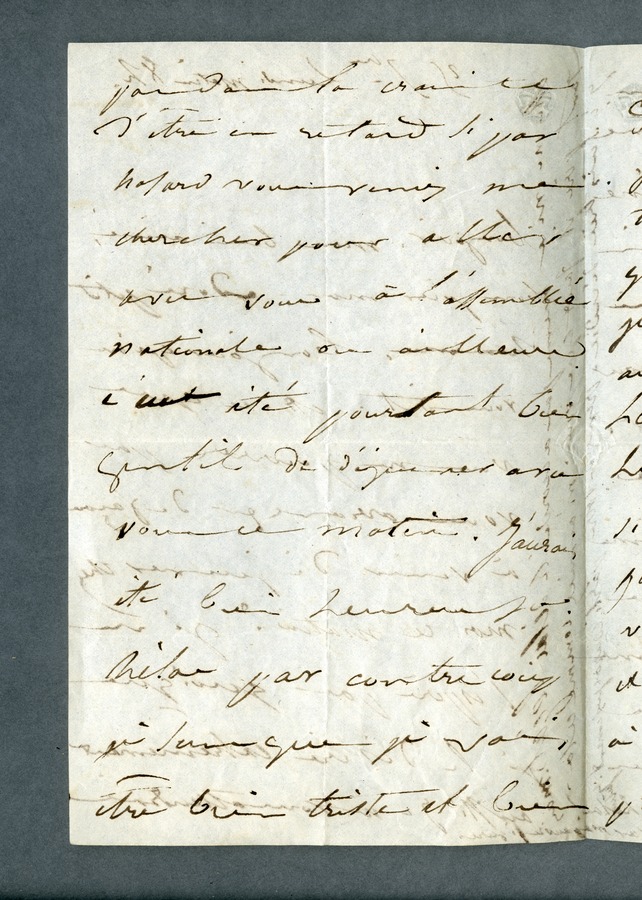 pas dans la crainte
d'être en retard si par
hasard vous veniez me
chercher pour aller
avec vous à l'assemblée
nationale ou ailleurs
c'eut été pourtant bien
gentil de déjeuner avec
vous ce matin. J'aurais
été bien heureuse.
hélas par contrecoup
je sens que je vais
être bien triste et bien